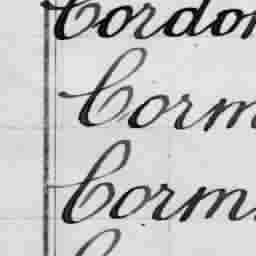 Cordon
Corm
Corm